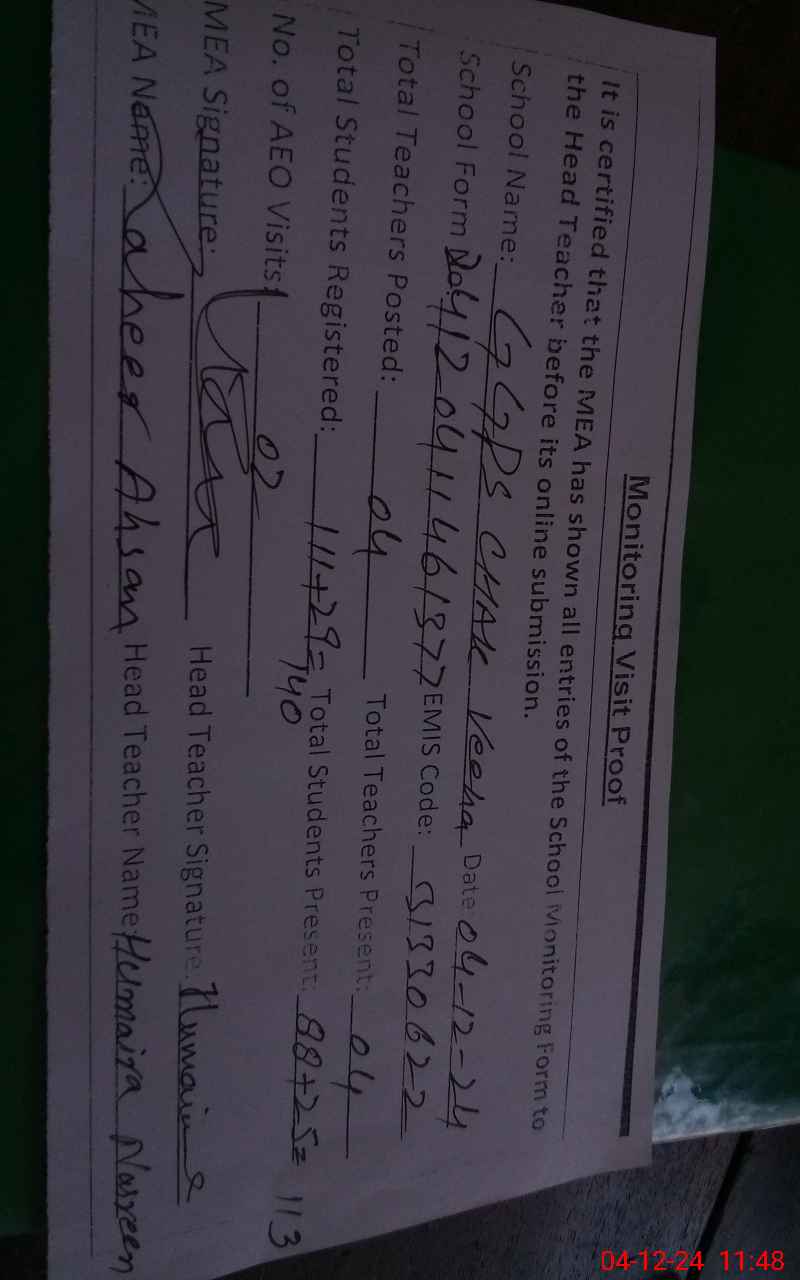 Monitoring Visit Proof
It is certified that the MEA has shown all entries of the School Monitoring Form to
the Head Teacher before its online submission.
School Name: GGPS CHAK Veeha Date 04-12-24
School Form No. 4120411461377 EMIS Code: 31330622
Total Teachers Posted: 04 Total Teachers Present: 04
Total Students Registered: 111+29=140 Total Students Present: 88+25= 113
No. of AEO Visits: 02
MEA Signature: Head Teacher Signature: Humaira
MEA Name: Zaheer Ahsan Head Teacher Name: Humaira Nasreen
04-12-24 11:48